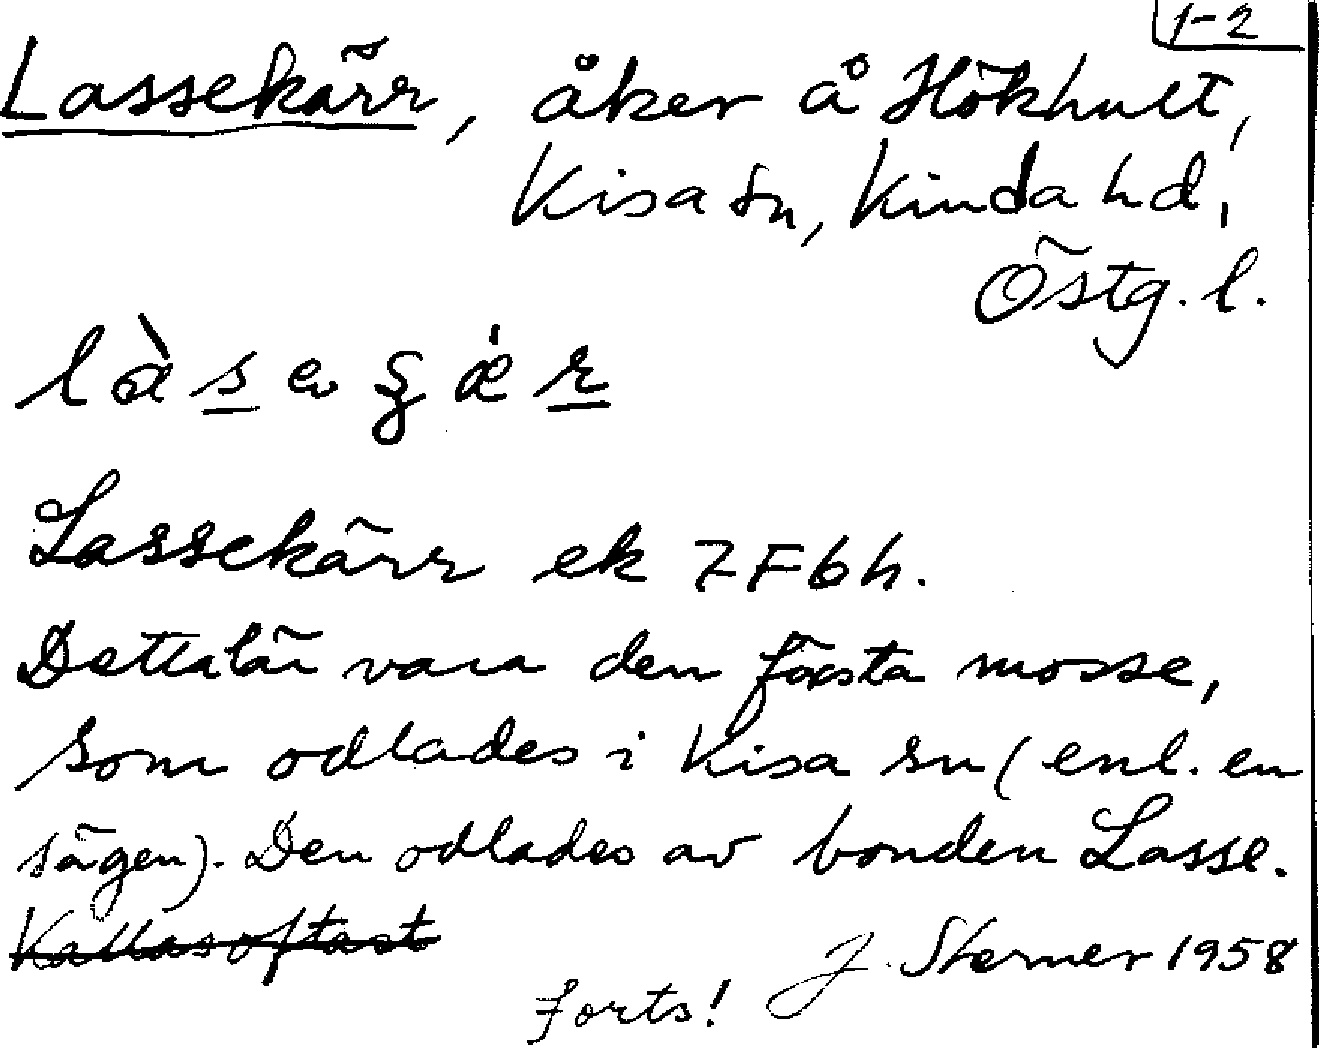 1-2
Lassekärr, åker å Hökhult,
Kisa sn, Kinda hd,
Östg. l.
Lassekärr ek 7F6h.
Detta lär vara den första mosse,
som odlades i Kisa sn (enl. en
sägen). Den odlades av bonden Lasse.
Kallas oftast
J. Sterner 1958
forts!